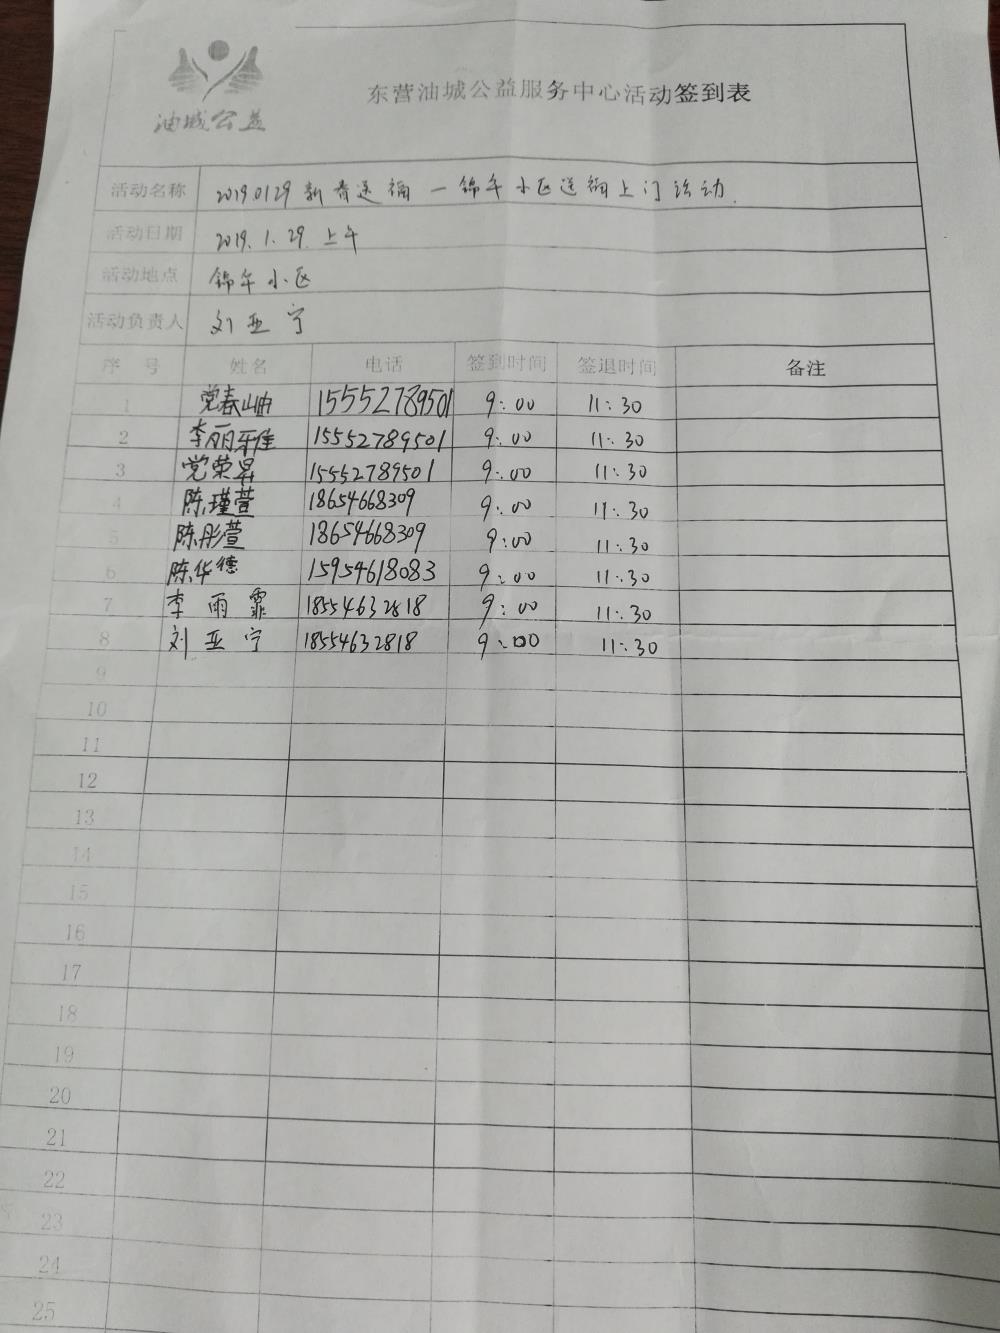 油城公益
东营油城公益服务中心活动签到表
活动名称 20190129新春送福—锦华小区送福上门活动.
活动日期 2019.1.29 上午
活动地点 锦华小区
活动负责人 刘亚宁
序号 姓名 电话 签到时间 签退时间 备注
1 党春岫 15552789501 9:00 11:30
2 李丽雅 15552789501 9:00 11:30
3 党荣昇 15552789501 9:00 11:30
4 陈瑾萱 18654668309 9:00 11:30
5 陈彤萱 18654668309 9:00 11:30
6 陈华德 15954618083 9:00 11:30
7 李雨霏 18554632818 9:00 11:30
8 刘亚宁 18554632818 9:00 11:30
9
10
11
12
13
14
15
16
17
18
19
20
21
22
23
24
25